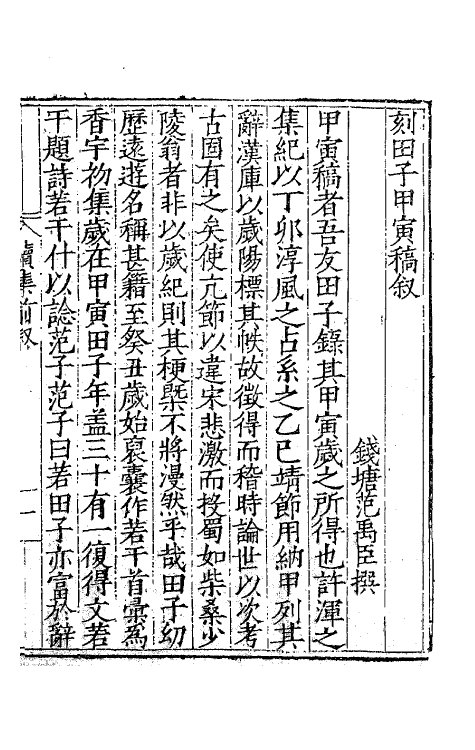 刻田子甲寅稿叙
錢塘范禹臣撰
甲寅稿者吾友田子錄其甲寅歲之所得也許渾之
集紀以丁卯淳風之占系之乙巳靖節用納甲列其
辭漢庫以歲陽標其帙故徵得而稽時論世以次考
古固有之矣使元節以違宋悲激而投蜀如柴桑少
陵翁者非以歲紀則其梗槩不將漫然乎哉田子幼
歷遠遊名稱甚籍至癸丑歲始裒囊作若干首彙為
香宇初集歲在甲寅田子年盖三十有一復得文若
干題詩若干什以諗范子范子曰若田子亦富於辭
續集前叙
一